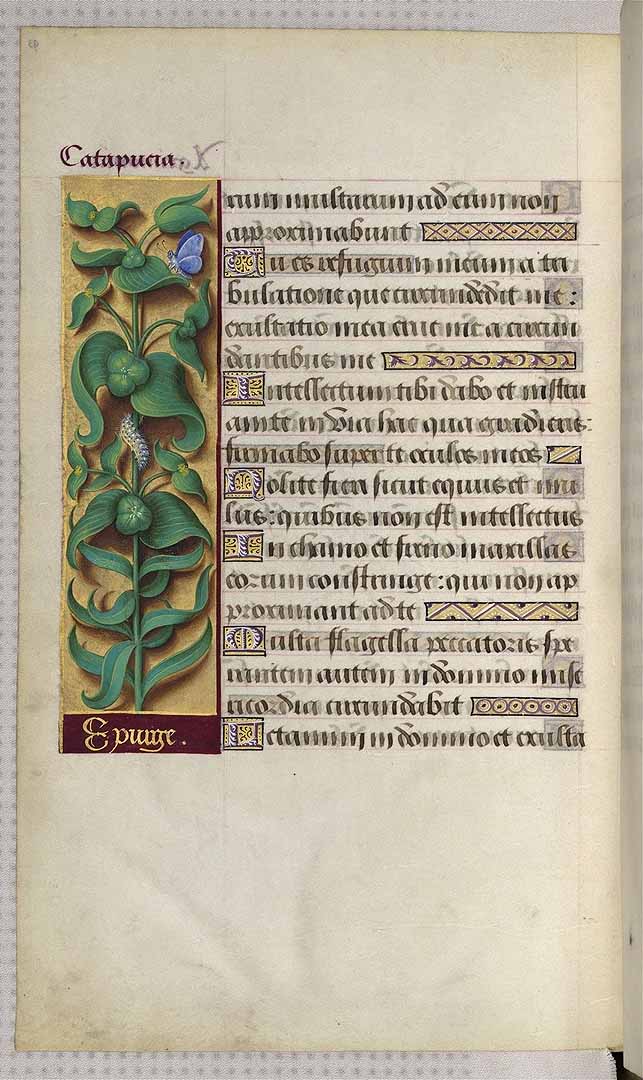 Catapucia.
rum multarum ad eum non
approximabunt
Tu es refugium meum a tri
bulatione que circumdedit me:
exultatio mea erue me a circun
dantibus me
Intellectum tibi dabo et instru
am te in via hac qua gradieris:
firmabo super te oculos meos
Nolite fieri sicut equus et mu
lus: quibus non est intellectus
In chamo et freno maxillas
eorum constringe: qui non ap
proximant ad te
Multa flagella peccatoris spe
rantem autem in domino mise
ricordia circundabit
Letamini in domino et exulta
Epurge.